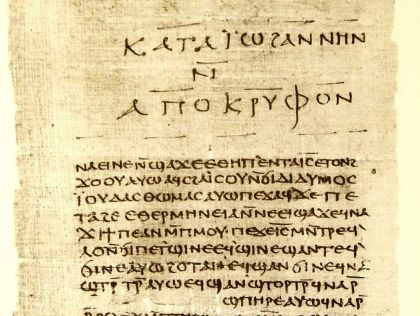 ⲕⲁⲧⲁ ⲓ̈ⲱϩⲁⲛⲛⲏⲛ
ⲛ̄
ⲁⲡⲟⲕⲣⲩⲫⲟⲛ
ⲛⲁⲉⲓⲛⲉⲛ̄ϣⲁϫⲉⲉⲑⲏⲡⲉⲛⲧⲁⲓ̅ⲥ̅ⲉⲧⲟⲛϩ
ϫⲟⲟⲩⲁⲩⲱⲁϥⲥϩⲁⲓ̈ⲥⲟⲩⲛ̄ϭⲓⲇⲓⲇⲩⲙⲟⲥ
ⲓ̈ⲟⲩⲇⲁⲥⲑⲱⲙⲁⲥⲁⲩⲱⲡⲉϫⲁϥϫⲉⲡⲉ
ⲧⲁϩⲉⲉⲑⲉⲣⲙⲏⲛⲉⲓⲁⲛ̄ⲛⲉⲉⲓϣⲁϫⲉϥⲛⲁ
ϫⲓϯⲡⲉⲁⲛⲙ̄ⲡⲙⲟⲩⲡⲉϫⲉⲓ̅ⲥ̅ⲙⲛ̄ⲧⲣⲉϥ
ⲗⲟⲛ̄ϭⲓⲡⲉⲧϣⲓⲛⲉⲉϥϣⲓⲛⲉϣⲁⲛⲧⲉϥ
ϭⲓⲛⲉⲁⲩⲱϩⲟⲧⲁⲛⲉϥϣⲁⲛϭⲓⲛⲉϥⲛⲁ
ϣⲧⲣ̄ⲧⲣ̄ⲁⲩⲱⲉϥϣⲁⲛϣⲧⲟⲣⲧⲣ̄ϥⲛⲁⲣ̄
ϣⲡⲏⲣⲉⲁⲩⲱϥⲛⲁⲣ̄